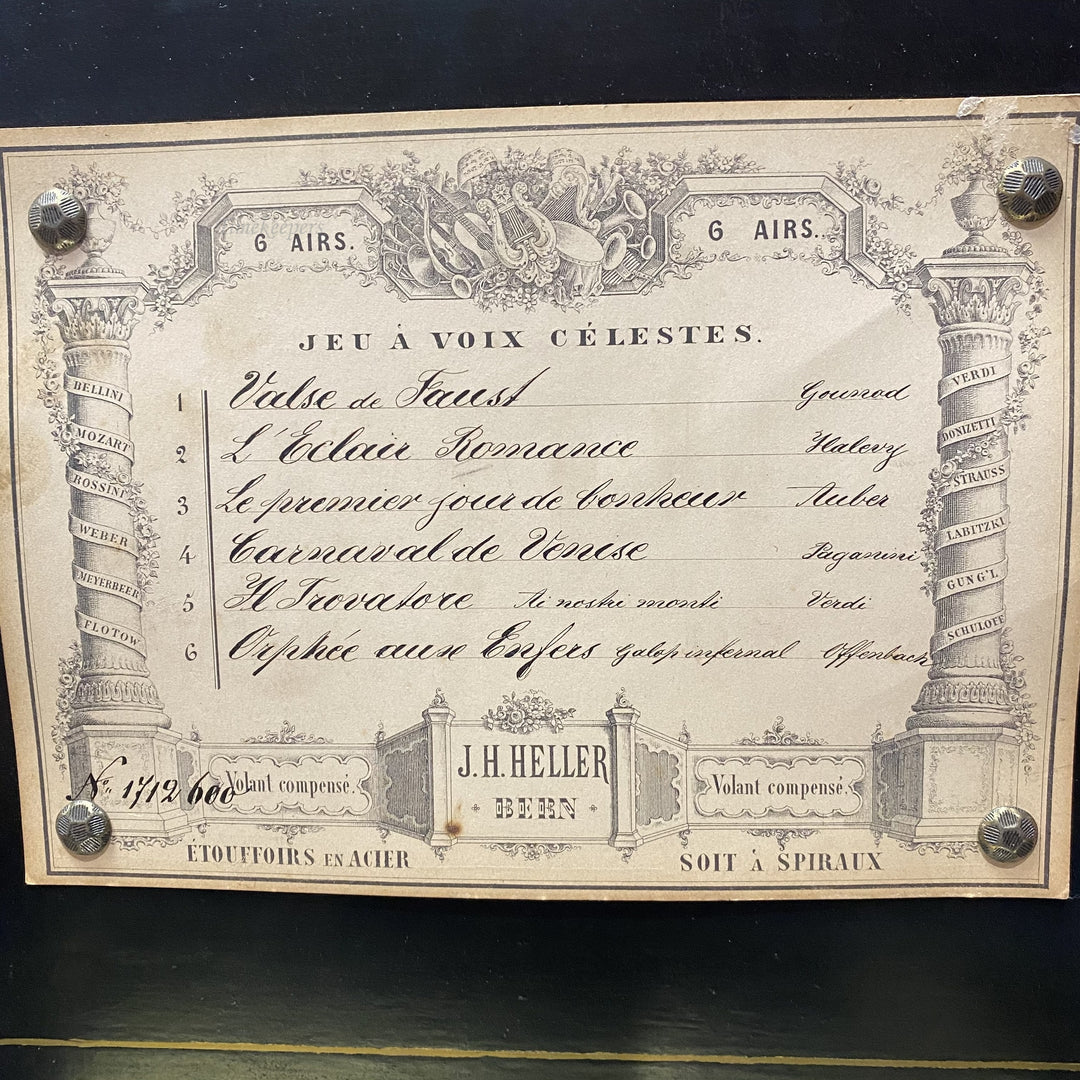 6 AIRS. 6 AIRS.
JEU À VOIX CÉLESTES.
1 Valse de Faust Gounod
2 L'Eclair Romance Halevy
3 Le premier jour de bonheur Auber
4 Carnaval de Venise Paganini
5 Il Trovatore Ai nostri monti Verdi
6 Orphée aux Enfers Galop infernal Offenbach
BELLINI
MOZART
ROSSINI
WEBER
MEYERBEER
FLOTOW
VERDI
DONIZETTI
STRAUSS
LABITZKI
GUNG'L
SCHULOFF
No. 1712 600
Volant compensé.
J.H. HELLER
BERN
Volant compensé.
ÉTOUFFOIRS EN ACIER
SOIT À SPIRAUX